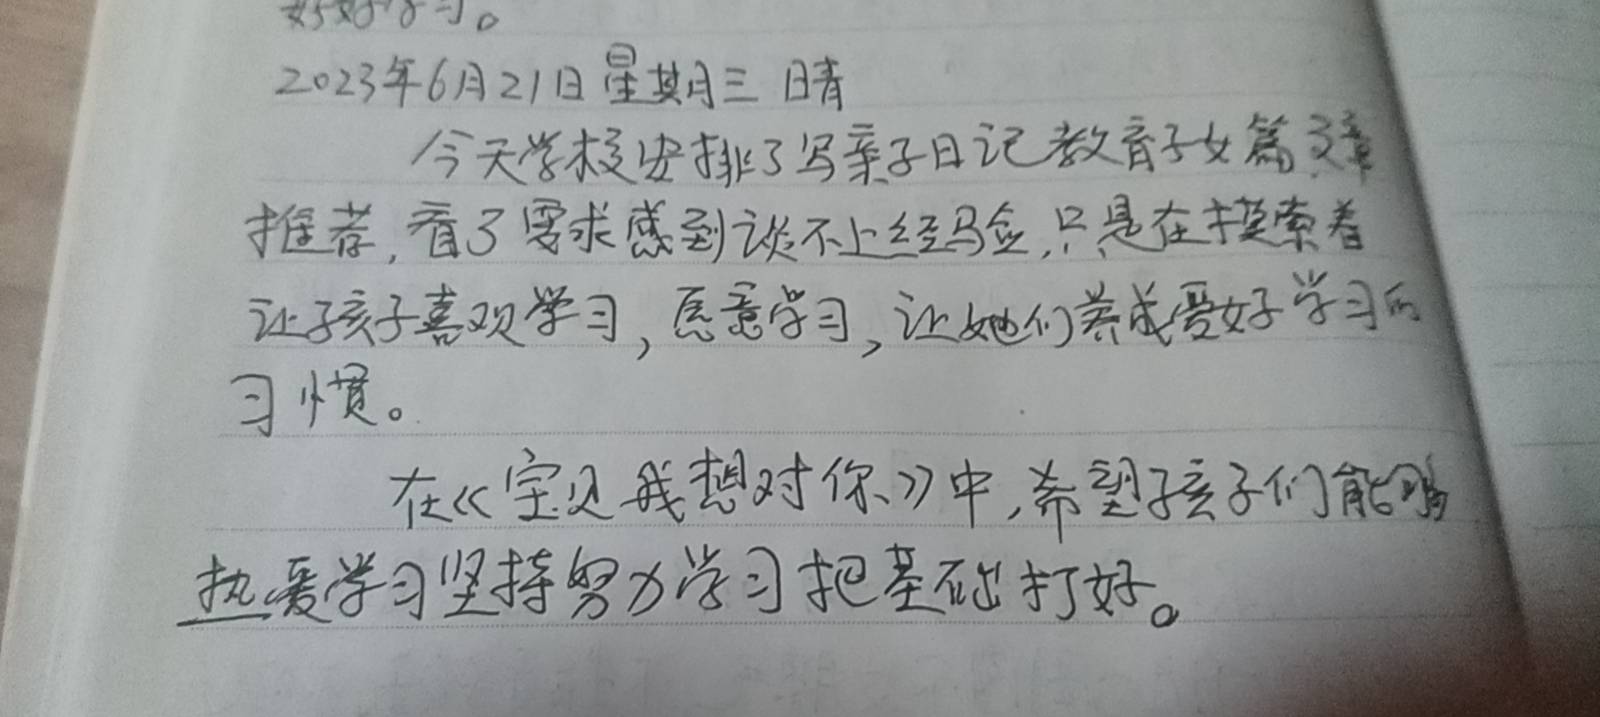 好好学习。
2023年6月21日 星期三 晴
今天学校安排了写亲子日记教育子女篇文章
推荐,看了要求感到谈不上经验,只是在摸索着
让孩子喜欢学习,愿意学习,让她们养成爱好学习的
习惯。
在《宝贝我想对你》中,希望孩子们能够
热爱学习坚持努力学习把基础打好。